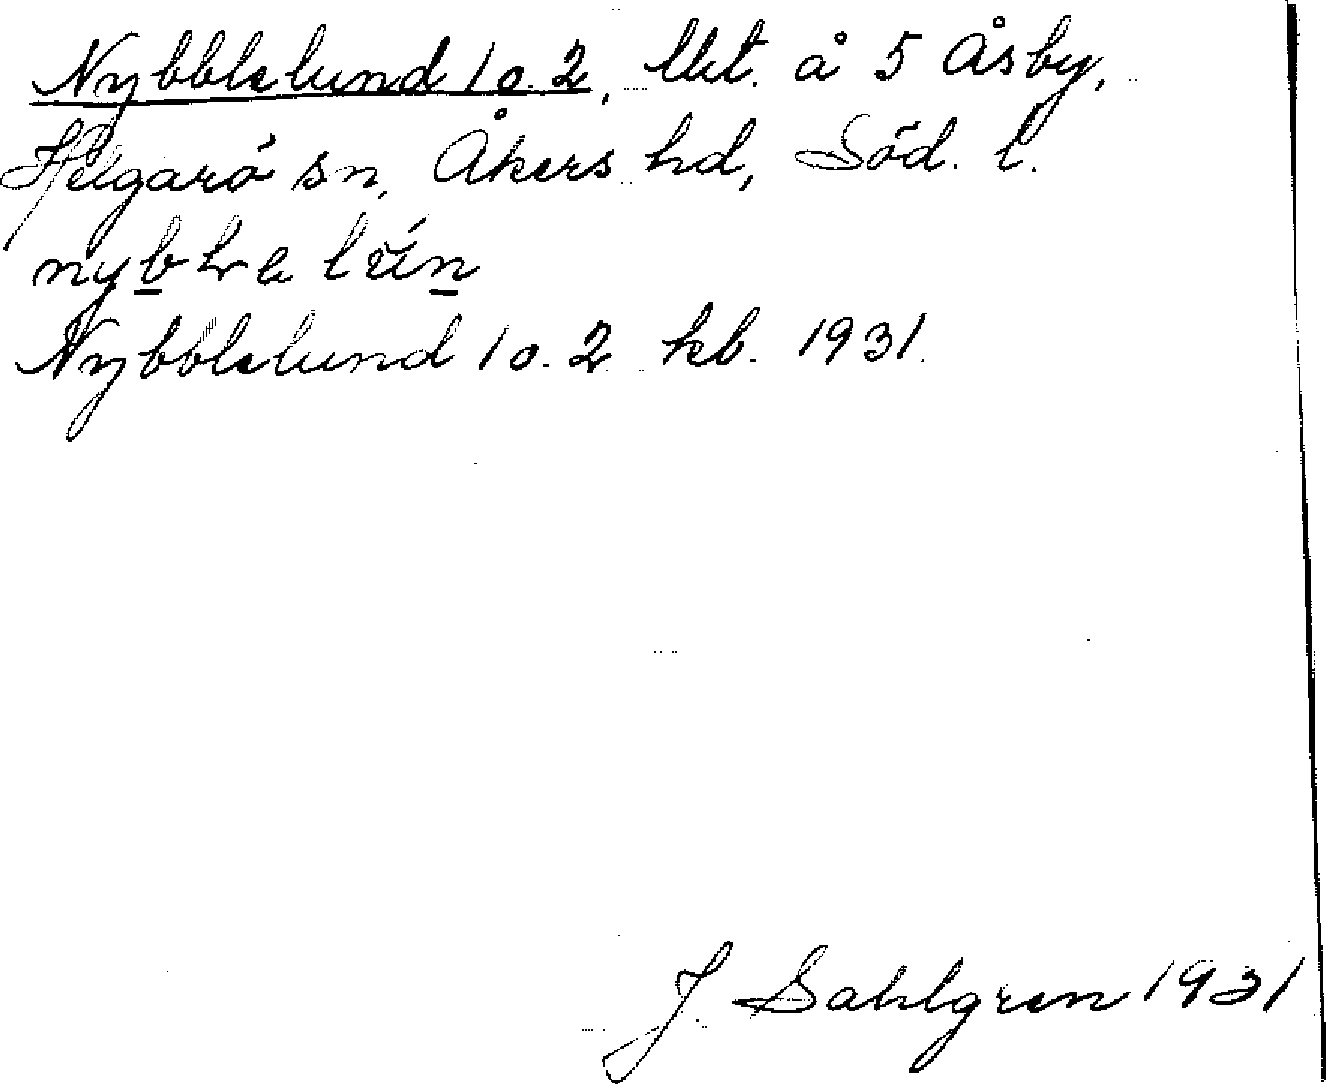 Nybblelund 1 o. 2, lht. å 5 Åsby,
Helgarö sn, Åkers hd, Söd. l.
Nybblelund 1 o. 2 kb. 1931.
J. Sahlgren 1931